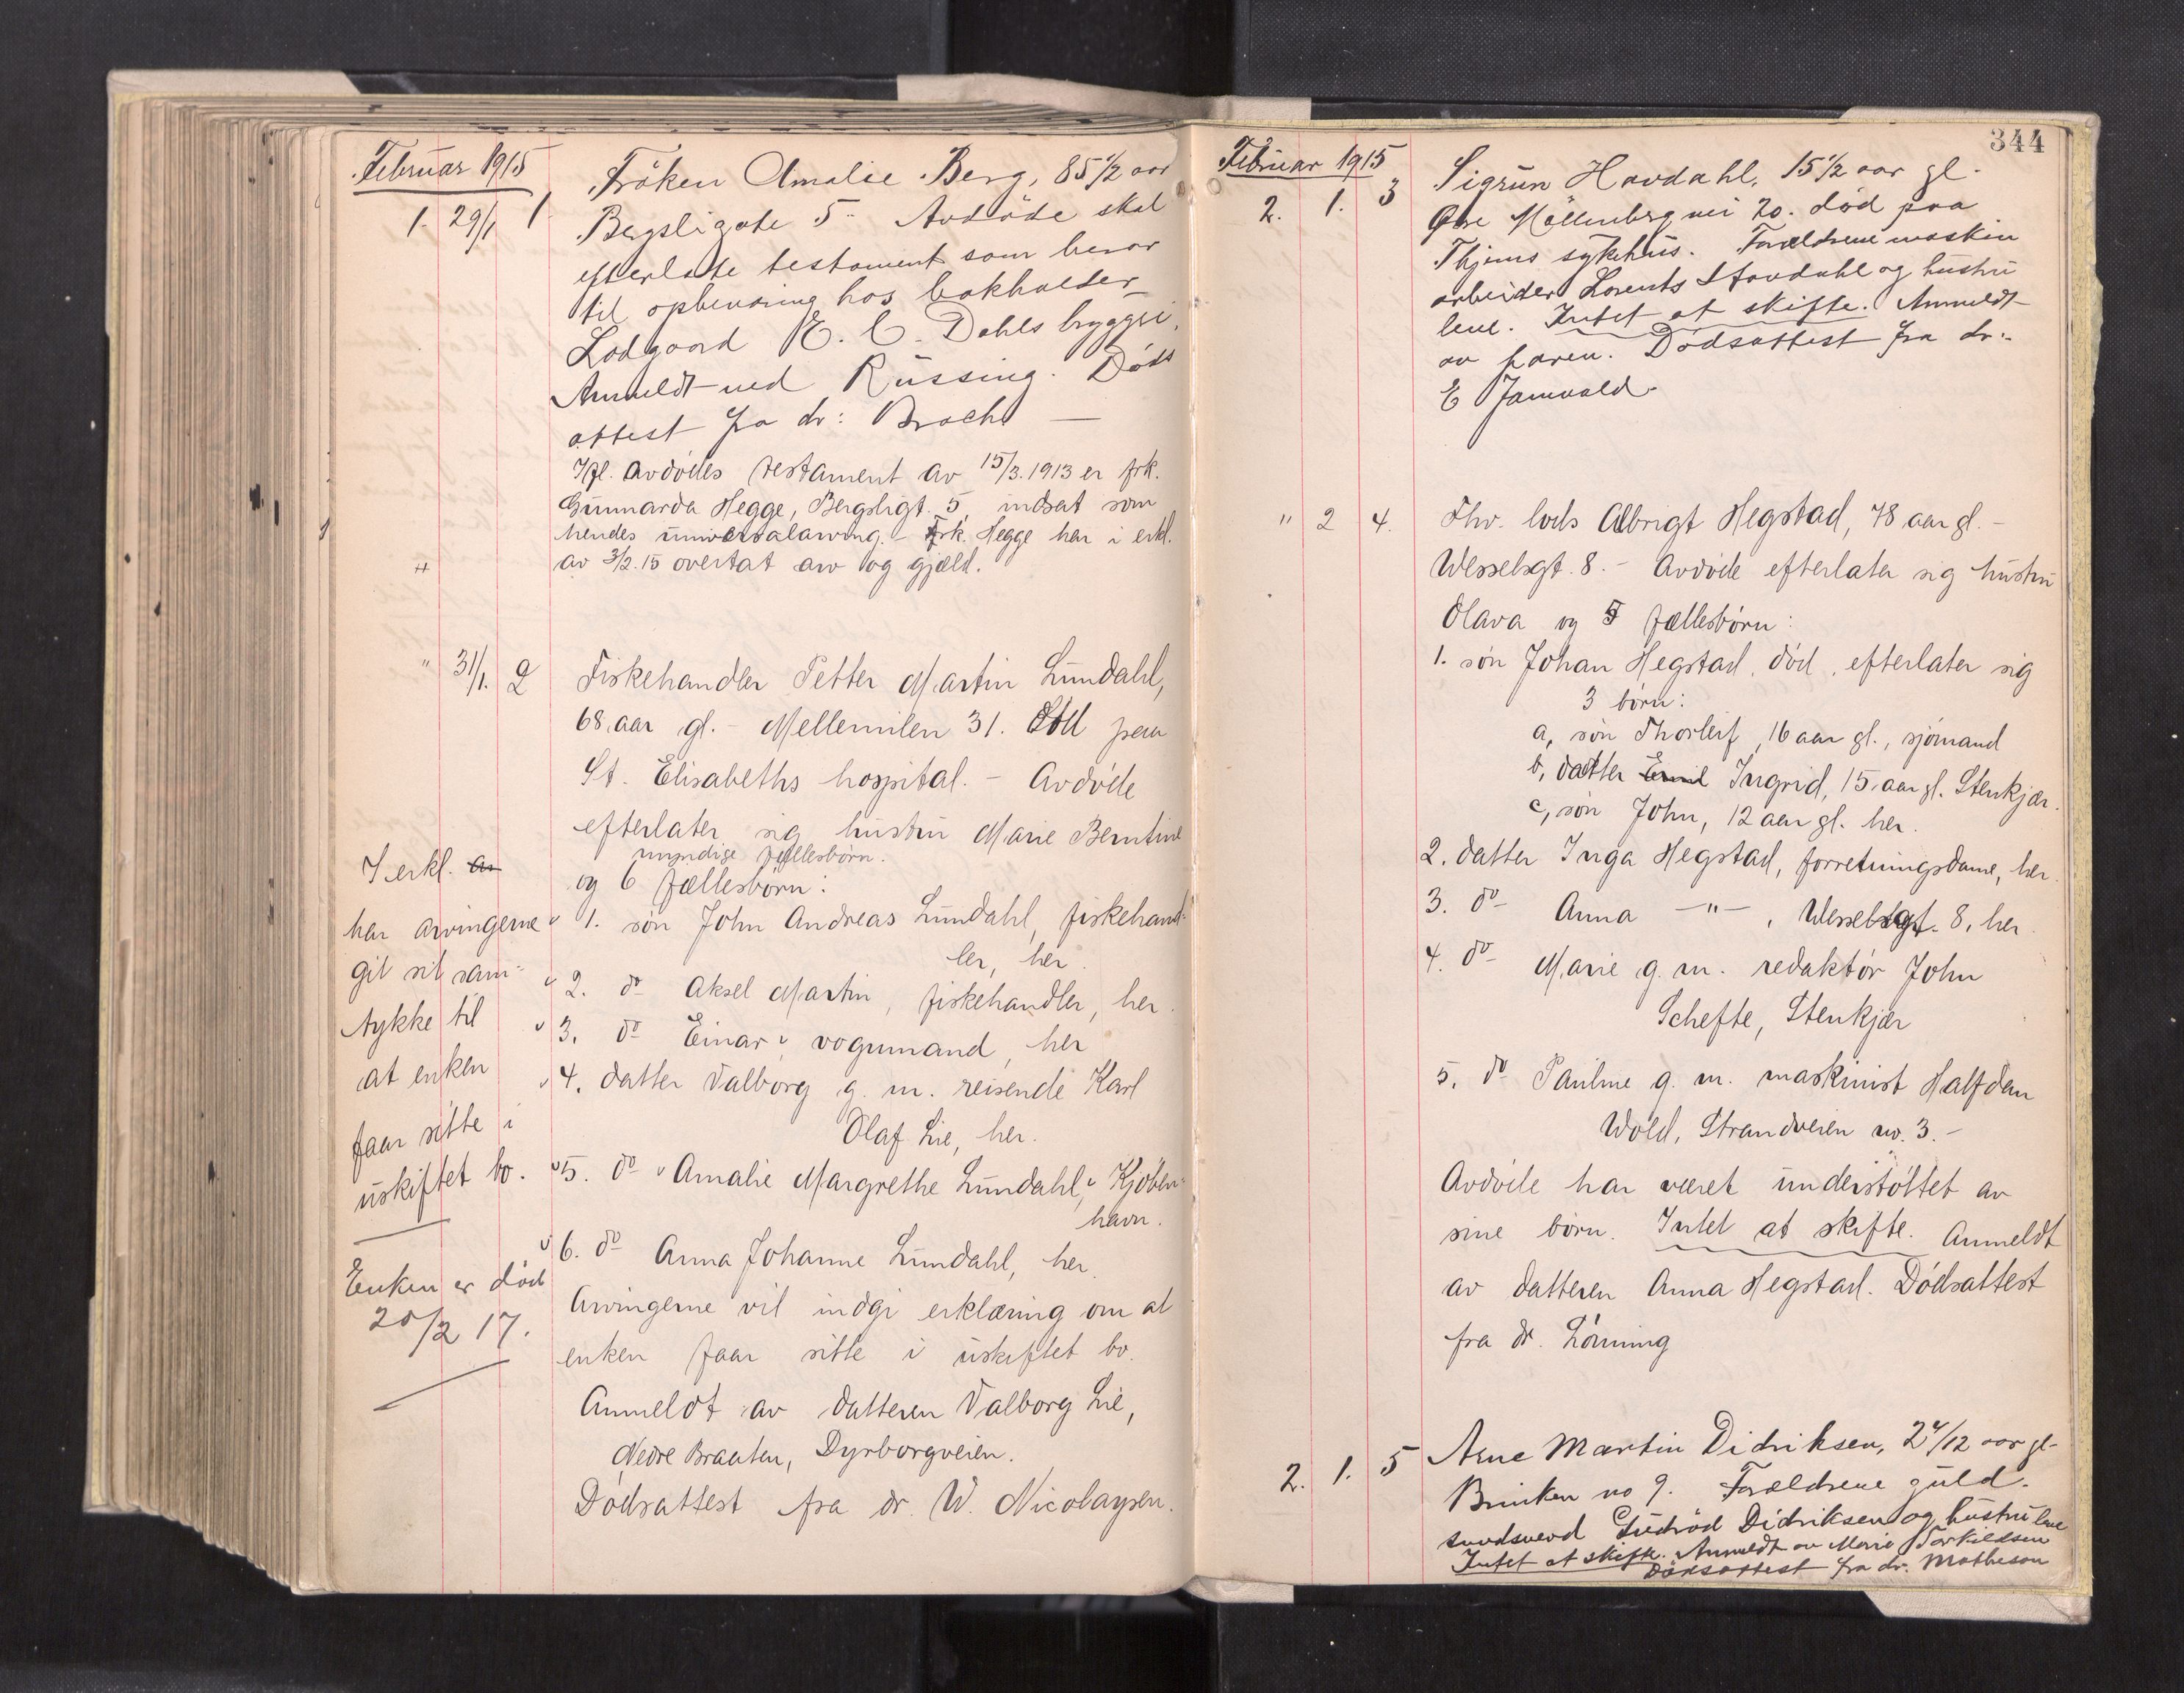 Februar 1915
1. 29/1 1. Frøken Amalie Berg, 85 1/2 aar
Bergsligate 5. Avdøde skal
efterlate testament som beror
til opbevaring hos bokholder
Lodgaard E. C. Dahls bryggeri.
Anmeldt ved Rüssing. Døds
attest fra dr: Broch —
Ifl. avdødes testament av 15/3.1913 er frk.
Gunnarda Hegge, Bergsligt. 5, indsat som
hendes universalarving. - Frk. Hegge har i erkl.
av 3/2.15 overtat arv og gjæld.
" 31/1. 2 Fiskehandler Petter Martin Lundahl,
68 aar gl. - Mellemilen 31. Død paa
St. Elisabeths hospital. - Avdøde
efterlater sig hustru Marie Berntine
myndige fællesbørn.
og 6 fællesbørn:
1. søn John Andreas Lundahl, fiskehand-
ler, her.
2. do Aksel Martin, fiskehandler, her.
3. do Einar, vognmand, her
4. datter Valborg g. m. reisende Karl
Olaf Lie, her.
5. do Amalie Margrethe Lundahl, Kjøben-
havn.
6. do Anna Johanne Lundahl, her.
Arvingerne vil indgi erklæring om at
enken faar sitte i uskiftet bo.
Anmeldt av datteren Valborg Lie,
Nedre Braaten, Dyrborgveien.
Dødsattest fra dr. W. Nicolaysen.
I erkl. av
har arvingerne
git sit sam-
tykke til
at enken
faar sitte i
uskiftet bo.
Enken er død
20/2 17.
344
Februar 1915
2. 1. 3 Sigrun Havdahl, 15 1/2 aar gl.
Øvre Møllenberg vei 20. død paa
Thjems sykehus. Forældrene maskin
arbeider Lorents Havdahl og hustru
leve. Intet at skifte. Anmeldt
av faren. Dødsattest fra dr:
E Jamvold
" 2 4. Fhv. lods Albrigt Hegstad, 78 aar gl. -
Wesselsgt. 8. - Avdøde efterlater sig hustru
Olava og 5 fællesbørn:
1. søn Johan Hegstad, død, efterlater sig
3 børn:
a, søn Thorleif, 16 aar gl., sjømand
b, datter Emil Ingrid, 15 aar gl. Stenkjær.
c, søn John, 12 aar gl. her.
2. datter Inga Hegstad, forretningsdame, her.
3. do Anna — " — , Wesselsgt. 8, her.
4. do Marie g. m. redaktør John
Schefte, Stenkjær
5. do Pauline g. m. maskinist Halfdan
Wold, Strandveien nr. 3. -
Avdøde har været understøttet av
sine børn. Intet at skifte. Anmeldt
av datteren Anna Hegstad. Dødsattest
fra dr. Lønning
2. 1. 5 Arne Martin Didriksen, 2 4/12 aar gl-
Brinken no 9. Forældrene guld-
smedsvend Didriksen og hustru leve
Intet at skifte. Anmeldt av Marie Torkildsen
Dødsattest fra dr. Matheson